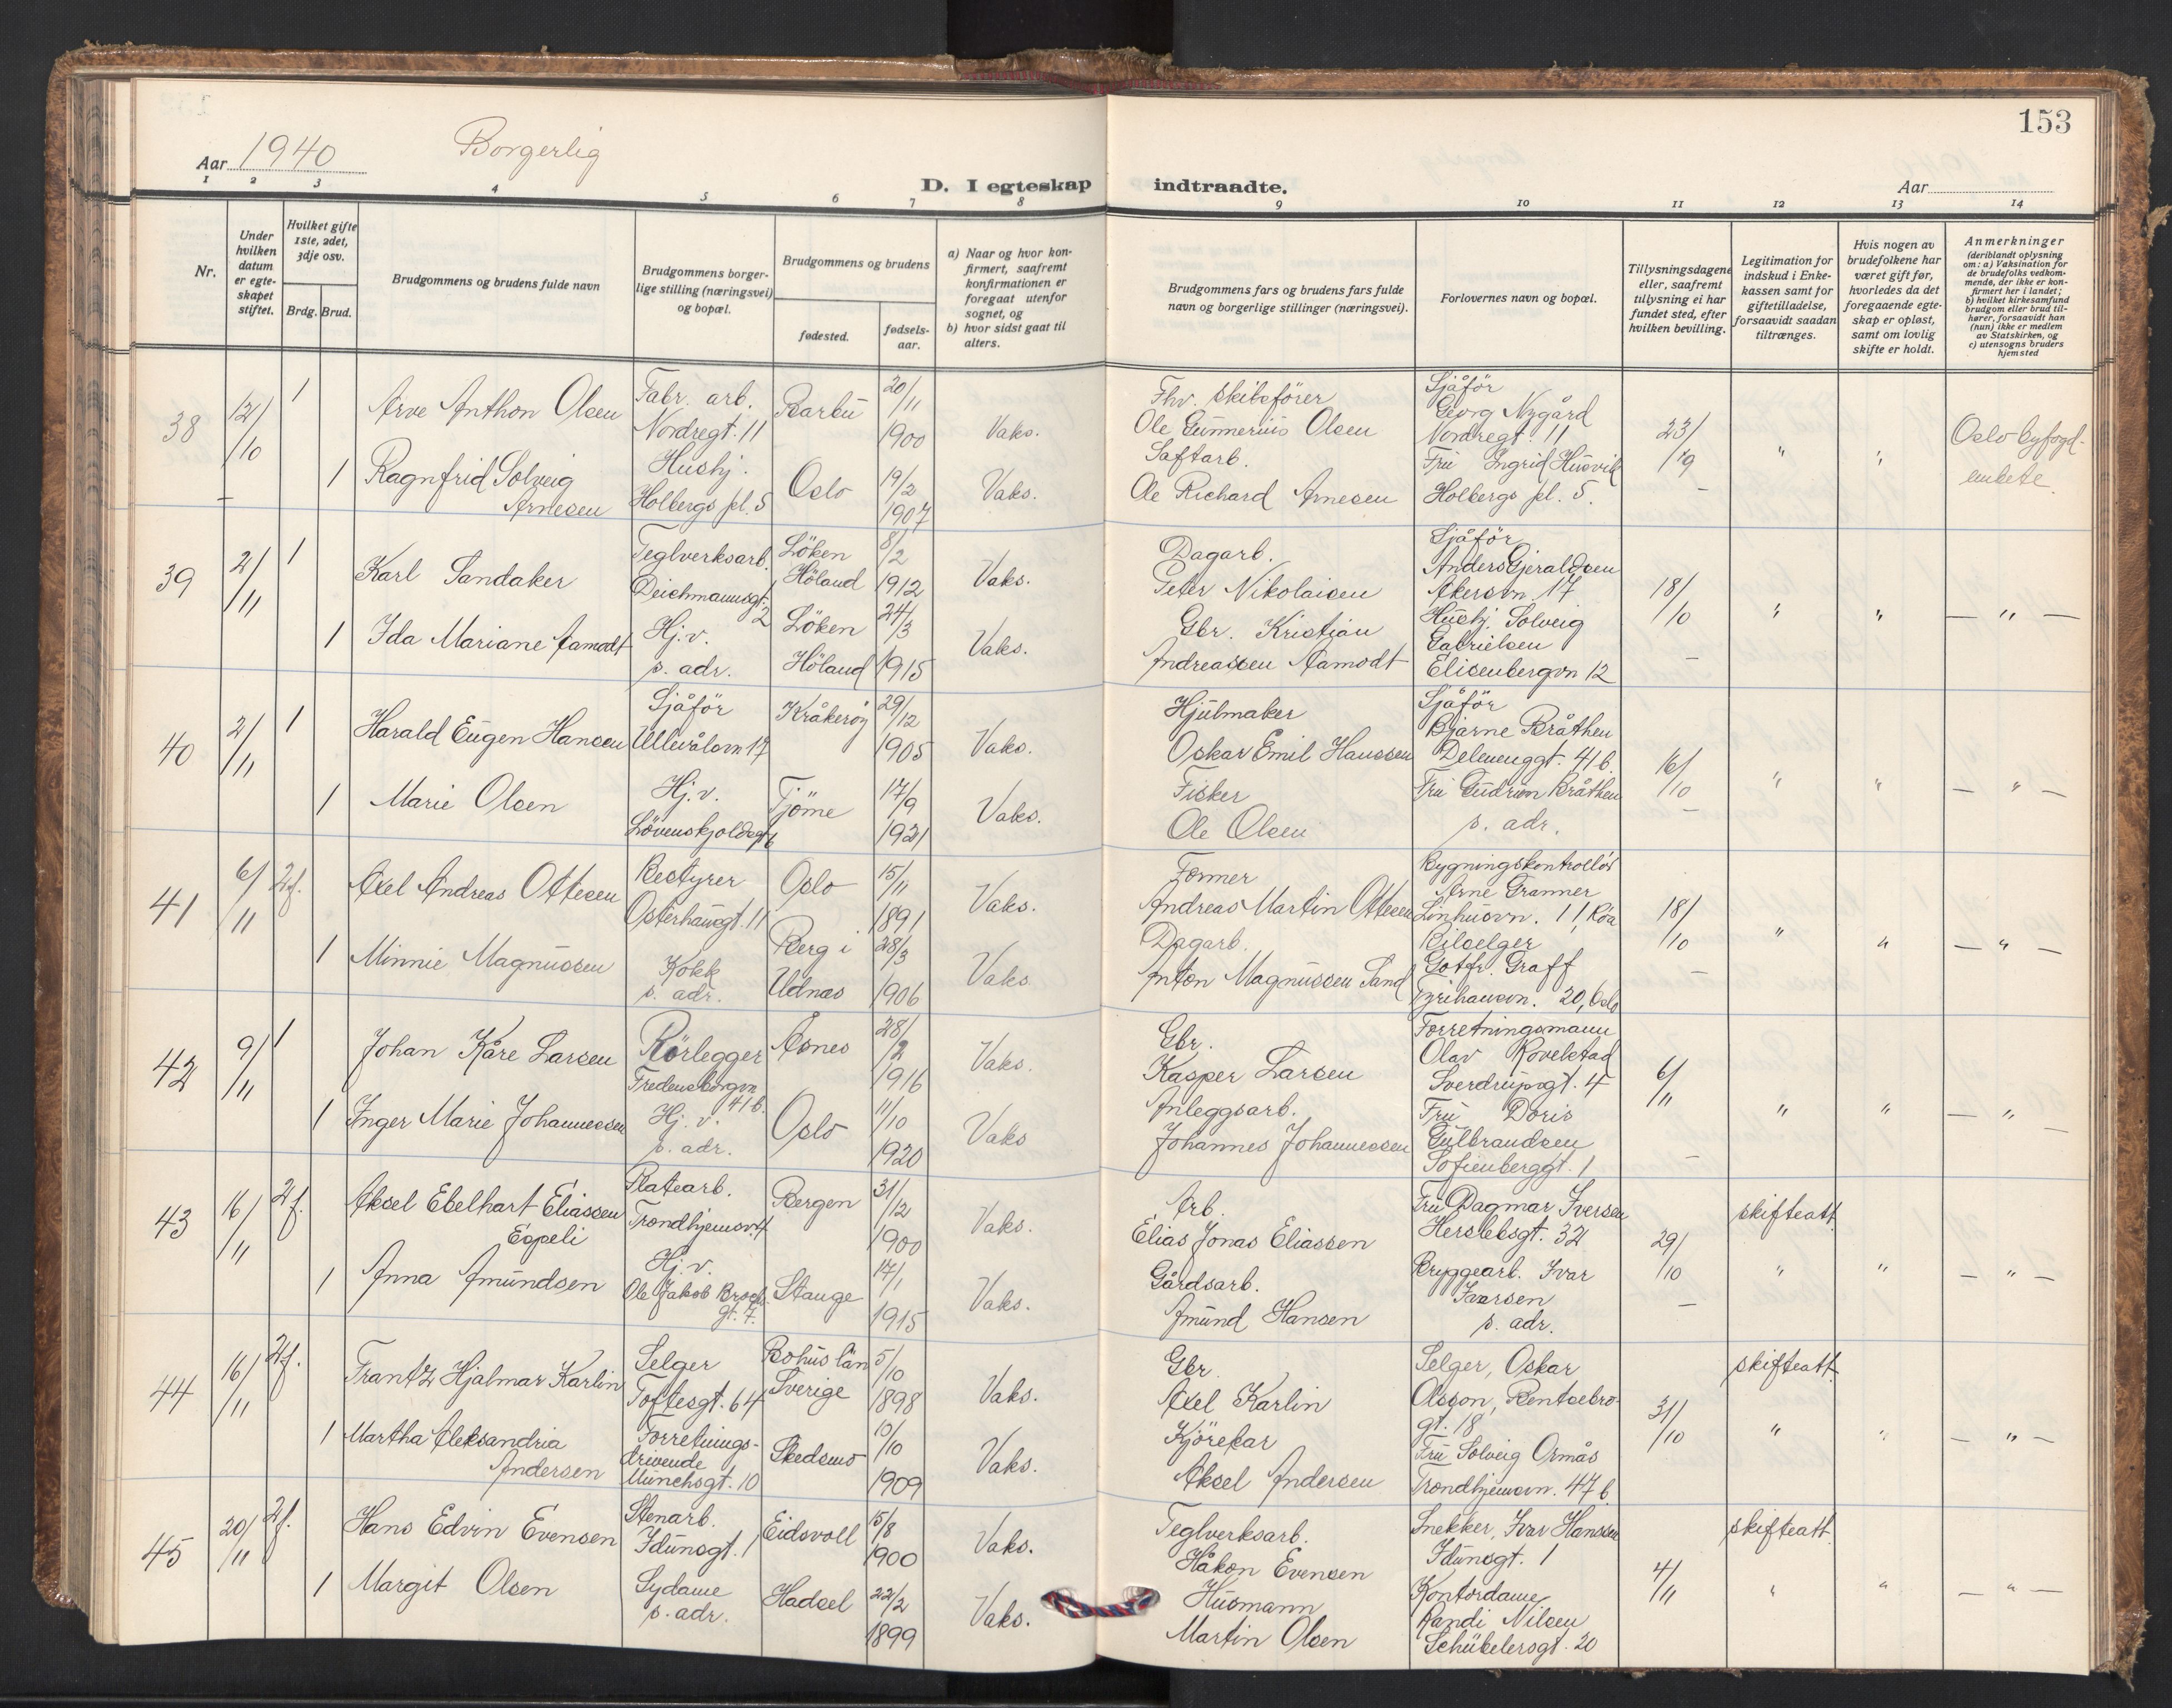 153
Aar 1940 Borgerlig
D. I egteskap indtraadte.
Aar
1 2 3 4 5 6 7 8 9 10 11 12 13 14
Nr.
Under hvilken datum er egteskapet stiftet.
Hvilket gifte 1ste, 2det, 3dje osv.
Brdg. Brud.
Brudgommens og brudens fulde navn
Brudgommens borgerlige stilling (næringsvei) og bopæl.
Brudgommens og brudens
fødested.
fødselsaar.
a) Naar og hvor konfirmert, saafremt konfirmationen er foregaat utenfor sognet, og
b) hvor sidst gaat til alters.
Brudgommens fars og brudens fars fulde navn og borgerlige stillinger (næringsvei).
Forlovernes navn og bopæl.
Tillysningsdagene eller, saafremt tillysning ei har fundet sted, efter hvilken bevilling.
Legitimation for indskud i Enkekassen samt for giftetilladelse, forsaavidt saadan tiltrænges.
Hvis nogen av brudefolkene har været gift før, hvorledes da det foregaaende egteskap er opløst, samt om lovlig skifte er holdt.
Anmerkninger (deriblandt oplysning om: a) Vaksination for de brudefolks vedkommende, der ikke er konfirmert her i landet; b) hvilket kirkesamfund brudgom eller brud tilhører, forsaavidt han (nun) ikke er medlem av Statskirken, og c) utensogns bruders hjemsted
38 12/10 1 Arve Anthon Olsen Fabr. arb. Nordregt. 11 Barbu 20/11 1900 Vaks. Fhv. skibsfører Ole Gunnerius Olsen Sjåför Georg Nygård Nordregt. 11 23/9 " " Oslo byfogd-embete
1 Ragnfrid Solveig Arnesen Hushj. Holbergs pl. 5 Oslo 19/2 1907 Vaks. Saftarb. Ole Richard Arnesen Fru Ingrid Husvik Holbergs pl. 5.
39 2/11 1 Karl Sandaker Teglverksarb. Deichmannsgt. 2 Löken Höland 8/2 1912 Vaks. Dagarb. Peter Nikolaisen Sjåför Anders Gjeraldsen Akersvn. 17 18/10 " " — " —
1 Ida Mariane Aamodt Hj. v. s. adr. Löken Höland 24/3 1915 Vaks. Gbr. Kristian Andreassen Aamodt Hushj. Solveig Gabrielsen Elisenbergvn 12
40 2/11 1 Harald Eugen Hansen Sjåför Ullevålsvn 17 Kråkeröy 29/12 1905 Vaks. Hjulmaker Oskar Emil Hanssen Sjåför Bjarne Bråthen Delenenggt. 41 b. 16/10 " " — " —
1 Marie Olsen Hj. v. Lövenskjoldsgt 6 Tjöme 17/9 1921 Vaks. Fisker Ole Olsen Fru Gudrun Bråthen s. adr.
41 6/11 2 f. Axel Andreas Ottesen Bestyrer Osterhausgt. 11 Oslo 15/11 1891 Vaks. Former Andreas Martin Ottesen Bygningskontrollör Arne Granner Linhusvn. 11, Röa 18/10 " " — " —
1 Minnie Magnussen Kokk s. adr. Berg i Udnæs 28/3 1906 Vaks Dagarb. Anton Magnussen Sand Bilselger Gotfr. Graff Tyrihansvn. 20, Oslo
42 9/11 1 Johan Kåre Larsen Rörlegger Fredensborgvn 41 b. Åsnes 28/2 1916 Vaks. Gbr. Kasper Larsen Forretningsmann Olav Rovelstad Sverdrupsgt. 4 6/11 " " — " —
1 Inger Marie Johannessen Hj. v. s. adr. Oslo 11/10 1920 Vaks Anleggsarb. Johannes Johannessen Fru Doris Gulbrandsen Sofienberggt. 1
43 16/11 2 f. Aksel Edelhart Eliassen Espeli Platearb. Trondhjemsv. 4 Bergen 31/12 1900 Vaks. Arb. Elias Jonas Eliassen Fru Dagmar Iversen Herslebsgt. 32 29/10 skifteatt. " " — " —
1 Anna Amundsen Hj. v. Ole Jakob Brochs gt. 7. Stange 17/1 1915 Vaks. Gårdsarb. Amund Hansen Bryggearb. Ivar Iversen s. adr.
44 16/11 2 f. Frantz Hjalmar Karlin Selger Toftesgt. 64 Bohus län Sverige 5/10 1898 Vaks. Gbr. Axel Karlin Selger, Oskar Olsson, Bentsebrogt. 18 31/10 skifteatt. " " — " —
1 Martha Aleksandria Andersen Forretningsdrivende Munchsgt. 10 Skedsmo 10/10 1909 Vaks. Kjörekar Aksel Andersen Fru Solveig Ormås Trondhjemsvn. 47 b.
45 20/11 2 f. Hans Edvin Evensen Stenarb. Idunsgt. 1 Eidsvoll 15/8 1900 Vaks. Teglverksarb. Håkon Evensen Snekker, Ivar Hanssen Idunsgt. 1 4/11 skifteatt. " " — " —
1 Margit Olsen Sydame s. adr. Hadsel 22/2 1899 Vaks. Husmann Martin Olsen Kontordame Randi Nilsen Schübelersgt. 20